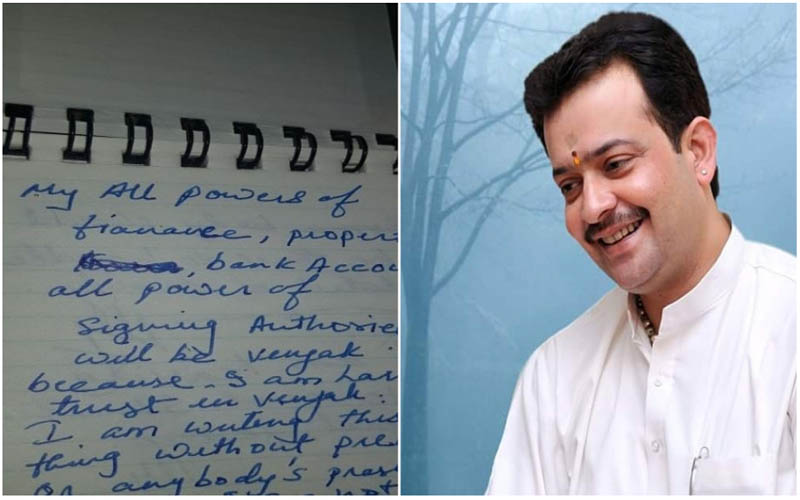 My All powers of
fianance, proper
, bank Accou
all power of
Signing Authorie
will be venyak
because. I am hav
trust in venyak.
I am writing this
thing without pre
or anybody's pres